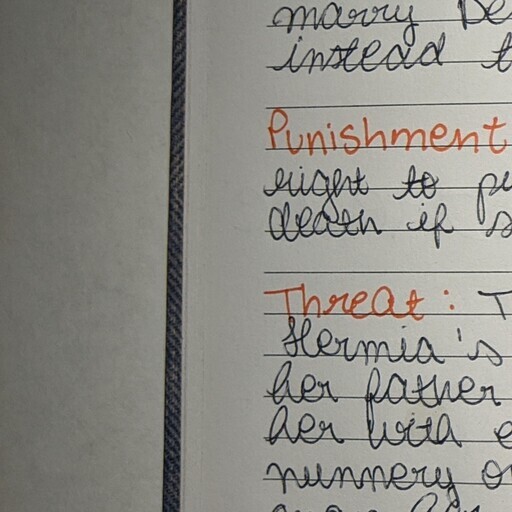 marry De
instead t
Punishment
right to pu
death if s
Threat: T
Hermia's
her father
her with e
nunnery o